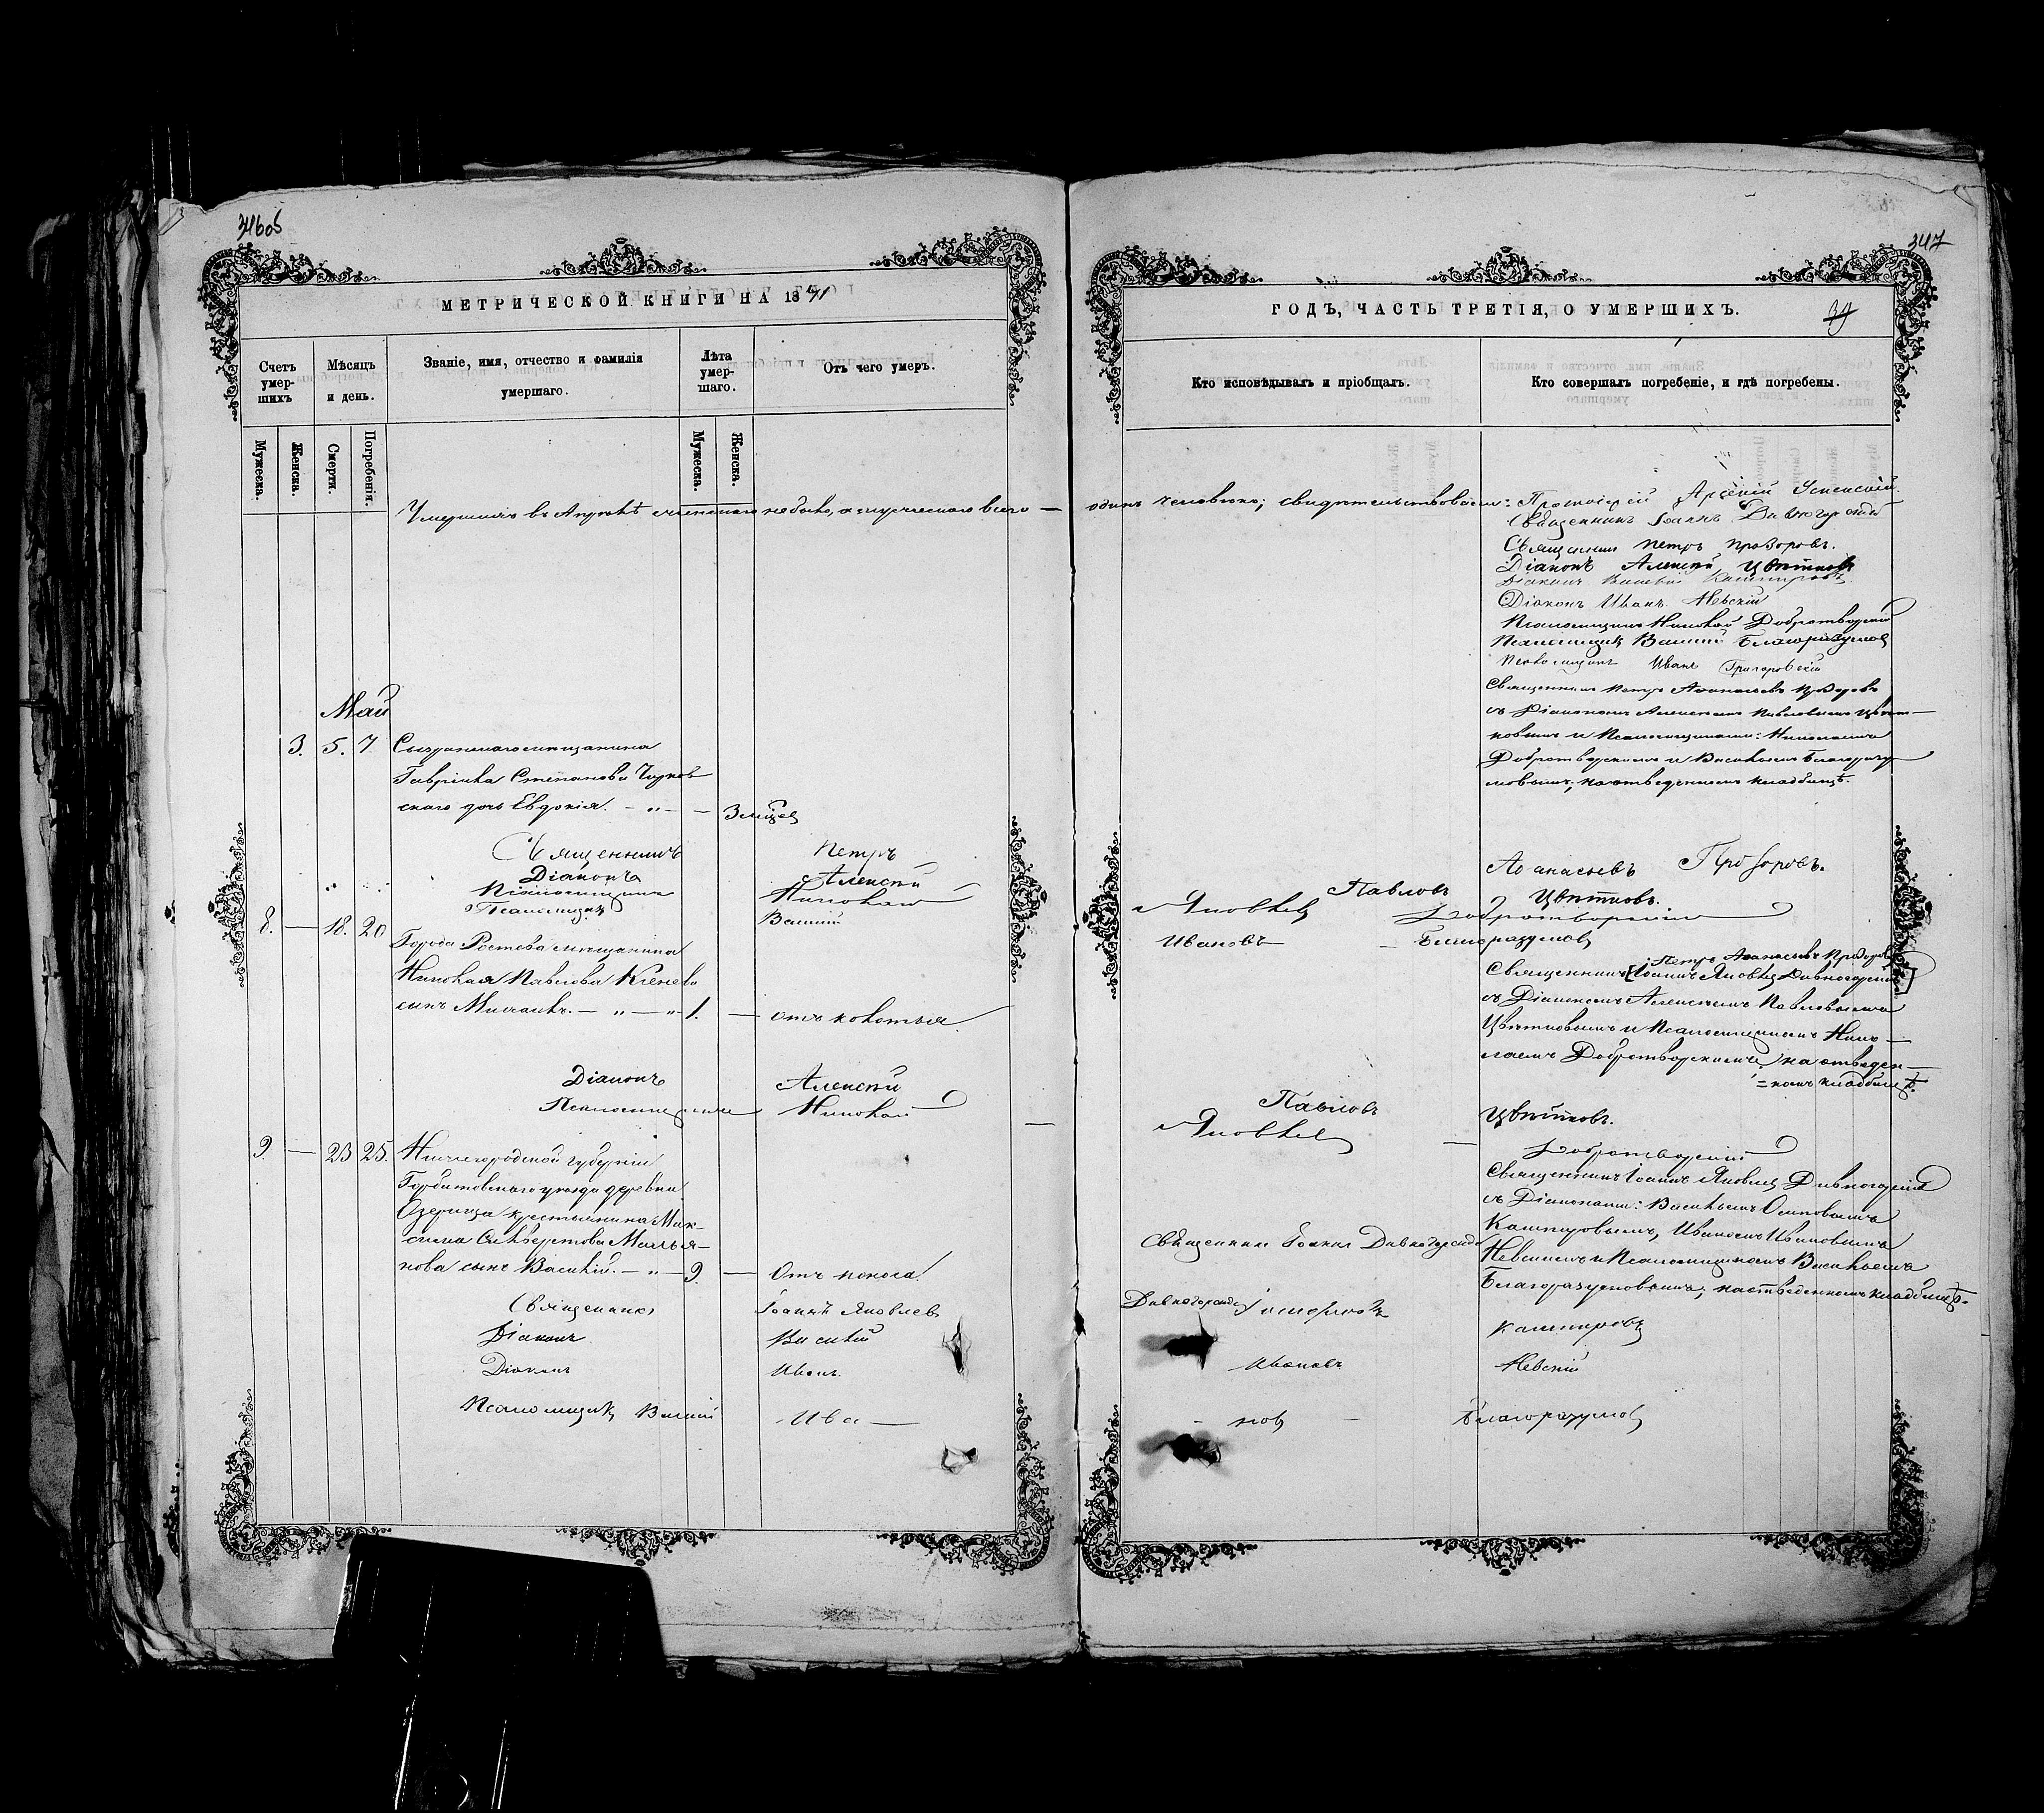 346об
МЕТРИЧЕСКОЙ КНИГИ НА 18
Счетъ умер-шихъ
Мѣсяцъ и день.
Званіе, имя, отчество и фамилія умершаго.
Лѣта умер-шаго.
Отъ чего умеръ.
Мужеска.
Женска.
Смерти.
Погребенія.
Мужеска.
Женска.
Умершихъ въ Апрѣлѣ женскаго не было, а мужескаго всего —
Май
3. 5. 7. Сызранскаго мѣщанина
Гавріила Степанова
скаго дочь Евдокія. — „ — — 3 мѣсяц
Священникъ Петръ
Діаконъ Алексѣй
Псаломщикъ Николай
Псаломщикъ Василій
8. — 18. 20 Города Ростова мѣщанина
Николая Павлова
сынъ Михаилъ. — „ — „ 1. — отъ колотья.
Діаконъ Алексѣй
Псаломщикъ Николай
9. — 23 25. Нижегородской губерніи
Горбатовскаго уѣзда деревни
крестьянина Мак-
сима
нова сынъ Василій. — „ — 9. — Отъ поноса.
Священникъ Іоаннъ Яковлевъ
Діаконъ Василій
Діаконъ Иванъ
Псаломщикъ Василій Ива —
347
ГОДЪ, ЧАСТЬ ТРЕТІЯ, О УМЕРШИХЪ.
39
Кто исповѣдывалъ и пріобщалъ.
Кто совершалъ погребеніе, и гдѣ погребены.
одинъ человѣкъ; свидѣтельствовали: Протоіерей Арсеній Успенскій.
Священникъ Іоаннъ Дивногорскій
Священникъ Петръ Прозоровъ.
Діаконъ Алексѣй Цвѣтковъ
Діаконъ Василій Кашпировъ
Діаконъ Иванъ Невскій
Псаломщикъ Николай Добротворскій
Псаломщикъ Василій Благоразумов
Псаломщикъ Иванъ Григоровскій
Священникъ Петръ Аѳанасьевъ Прозоровъ
съ Діакономъ Алексѣемъ Павловымъ Цвѣт—
ковымъ и Псаломщиками: Николаемъ
Добротворскимъ и Василіемъ Благоразу
мовымъ; на отведенномъ кладбищѣ.
Аѳанасьевъ Прозоровъ.
Павловъ Цвѣтковъ.
Яковлев Добротворскій
Ивановъ — Благоразумов
Петръ Аѳанасьевъ Прозоровъ
Священникъ [Іоаннъ Яковлев Дивногорскій]
съ Діакономъ Алексѣемъ Павловымъ
Цвѣтковымъ и Псаломщикомъ Нико—
лаемъ Добротворскимъ, на отведен—
=номъ кладбищѣ.
Павловъ Цвѣтковъ.
Яковлев — Добротворскій
Священникъ Іоаннъ Яковлев Дивногорскій
съ Діаконами: Василіемъ Осиповымъ
Кашпировымъ, Иваномъ Ивановымъ
Священникъ Іоаннъ Дивногорскій
Невскимъ и Псаломщикомъ Василіемъ
Благоразумовымъ; на отведенномъ кладбищѣ.
Дивногорскій
Кашпировъ
Ивановъ Невскій
— нов — Благоразумов